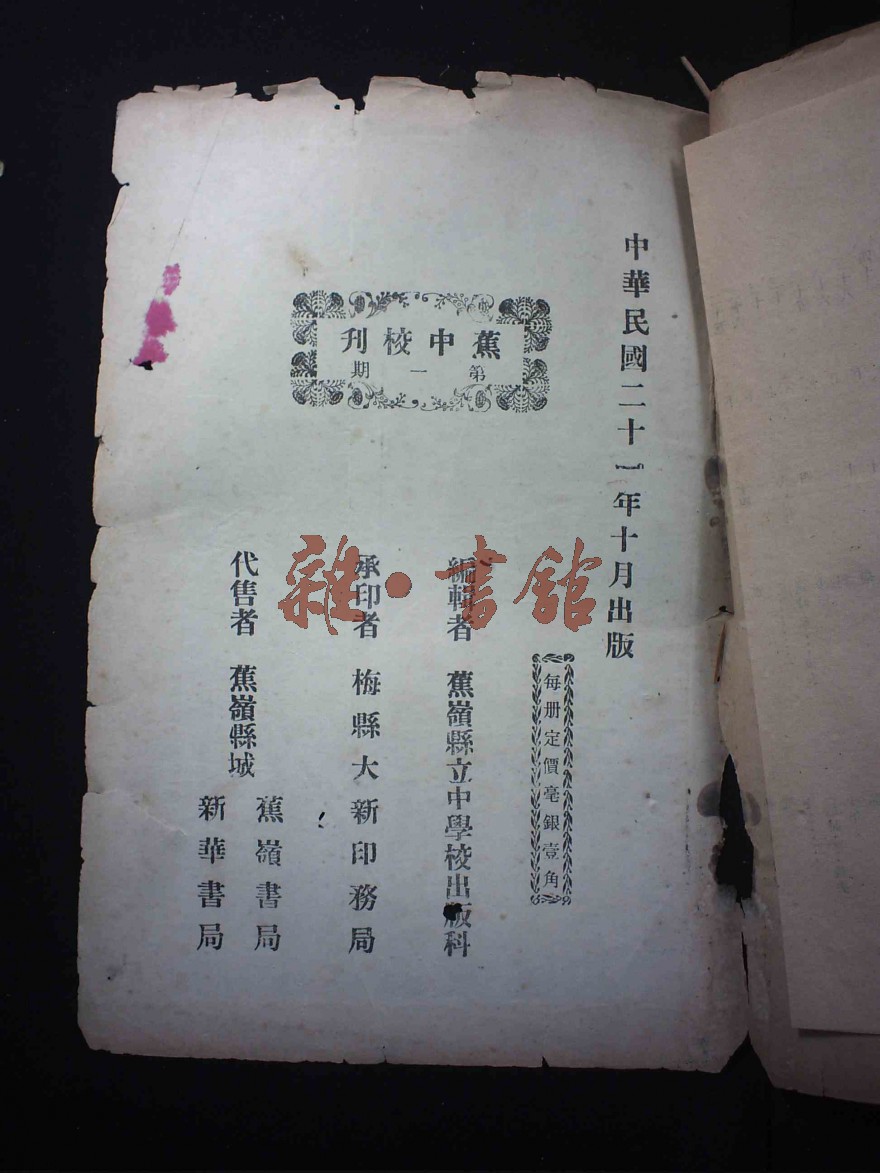 中華民國二十一年十月出版
蕉中校刊
第一期
每册定價毫銀壹角
編輯者 蕉嶺縣立中學校出版科
承印者 梅縣大新印務局
代售者 蕉嶺縣城
蕉嶺書局
新華書局
雜·書館